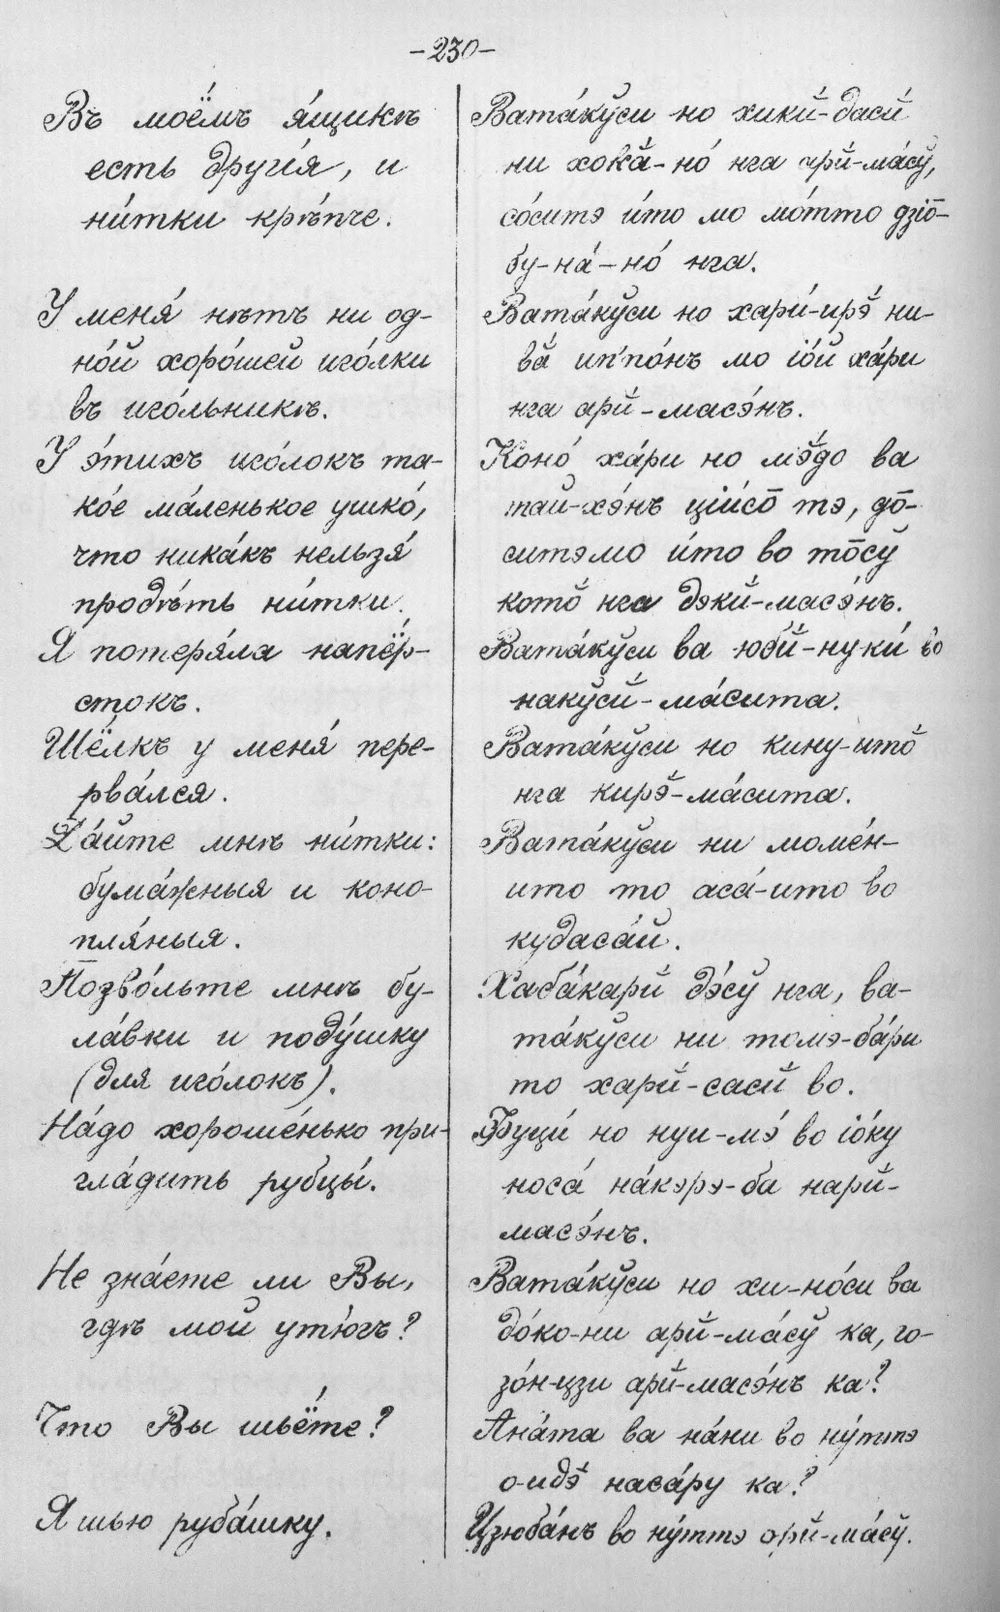 -230-
Въ моёмъ я́щикѣ
есть другія, и
ни́тки крѣ́пче.
У меня́ нѣтъ ни од-
но́й хоро́шей иго́лки
въ иго́льникѣ.
У э́тихъ иго́локъ та-
ко́е ма́ленькое ушко́,
что ника́къ нельзя́
продѣ́ть ни́тки.
Я потеря́ла напёр-
стокъ.
Шёлкъ у меня́ пере-
рва́лся.
Да́йте мнѣ ни́тки:
бума́жныя и коно-
пля́ныя.
Позво́льте мнѣ бу-
ла́вки и поду́шку
(для иго́локъ).
На́до хороше́нько при-
гла́дить рубцы́.
Не зна́ете ли Вы,
гдѣ мой утю́гъ?
Что Вы шьёте?
Я шью руба́шку.
Вата́кӯси но хикӣ-дасӣ
ни хока̄-но́ нга арӣ-ма́сӯ,
со́ситэ и́то мо мо́тто дзіо̄-
бу-на́-но́ нга.
Вата́кӯси но хари́-ирэ̄ ни-
ва̄ ип'по́нъ мо іо́й ха́ри
нга арӣ-масэ́нъ.
Коно́ ха́ри но мэ̄до ва
тай-хэ́нъ ціи́со̄ тэ, до̄-
ситэмо и́то во то̄сӯ
кото̄ нга дэкӣ-масэ́нъ.
Вата́кӯси ва юбӣ-нуки́ во
накӯсӣ-ма́сита.
Вата́кӯси но кину-ито̄
нга кирэ̄-ма́сита.
Вата́кӯси ни моме́н-
ито то аса́-ито во
кудаса́й.
Хаба́карӣ дэ́сӯ нга, ва-
та́кӯси ни томэ-ба́ри
то харӣ-сасӣ во.
Фуци́ но нуи-мэ́ во іо́ку
носа́ на́кэрэ-ба нарӣ-
масэ́нъ.
Вата́кӯси но хи-но́си ва
до́ко-ни арӣ-ма́сӯ ка, го-
зо́н-цзи арӣ-масэ́нъ ка?
Ана́та ва на́ни во ну́ттэ
о-идэ̄ наса́ру ка?
Цзюба́нъ во ну́ттэ орӣ-ма́сӯ.